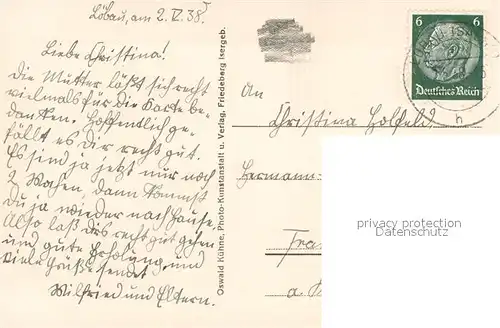 Löbau, am 2. V. 38.
Liebe Christina!
Die Mutter läßt sich recht
vielmals für die Karte be-
danken. Hoffentlich ge-
fällt es dir recht gut.
Es sind ja jetzt nur noch
2 Wochen, dann kommst
Du ja wieder nach Hause.
Also laß dirs recht gut gehen
und gute Erholung, und
viele Grüße sendet
Wilfried und Eltern.
Oswald Kühne, Photo-Kunstanstalt u. Verlag, Friedeberg Isergeb.
6 6
Deutsches Reich
h
An
Christina Holfeld
Hermann-
privacy protection
Datenschutz
a.